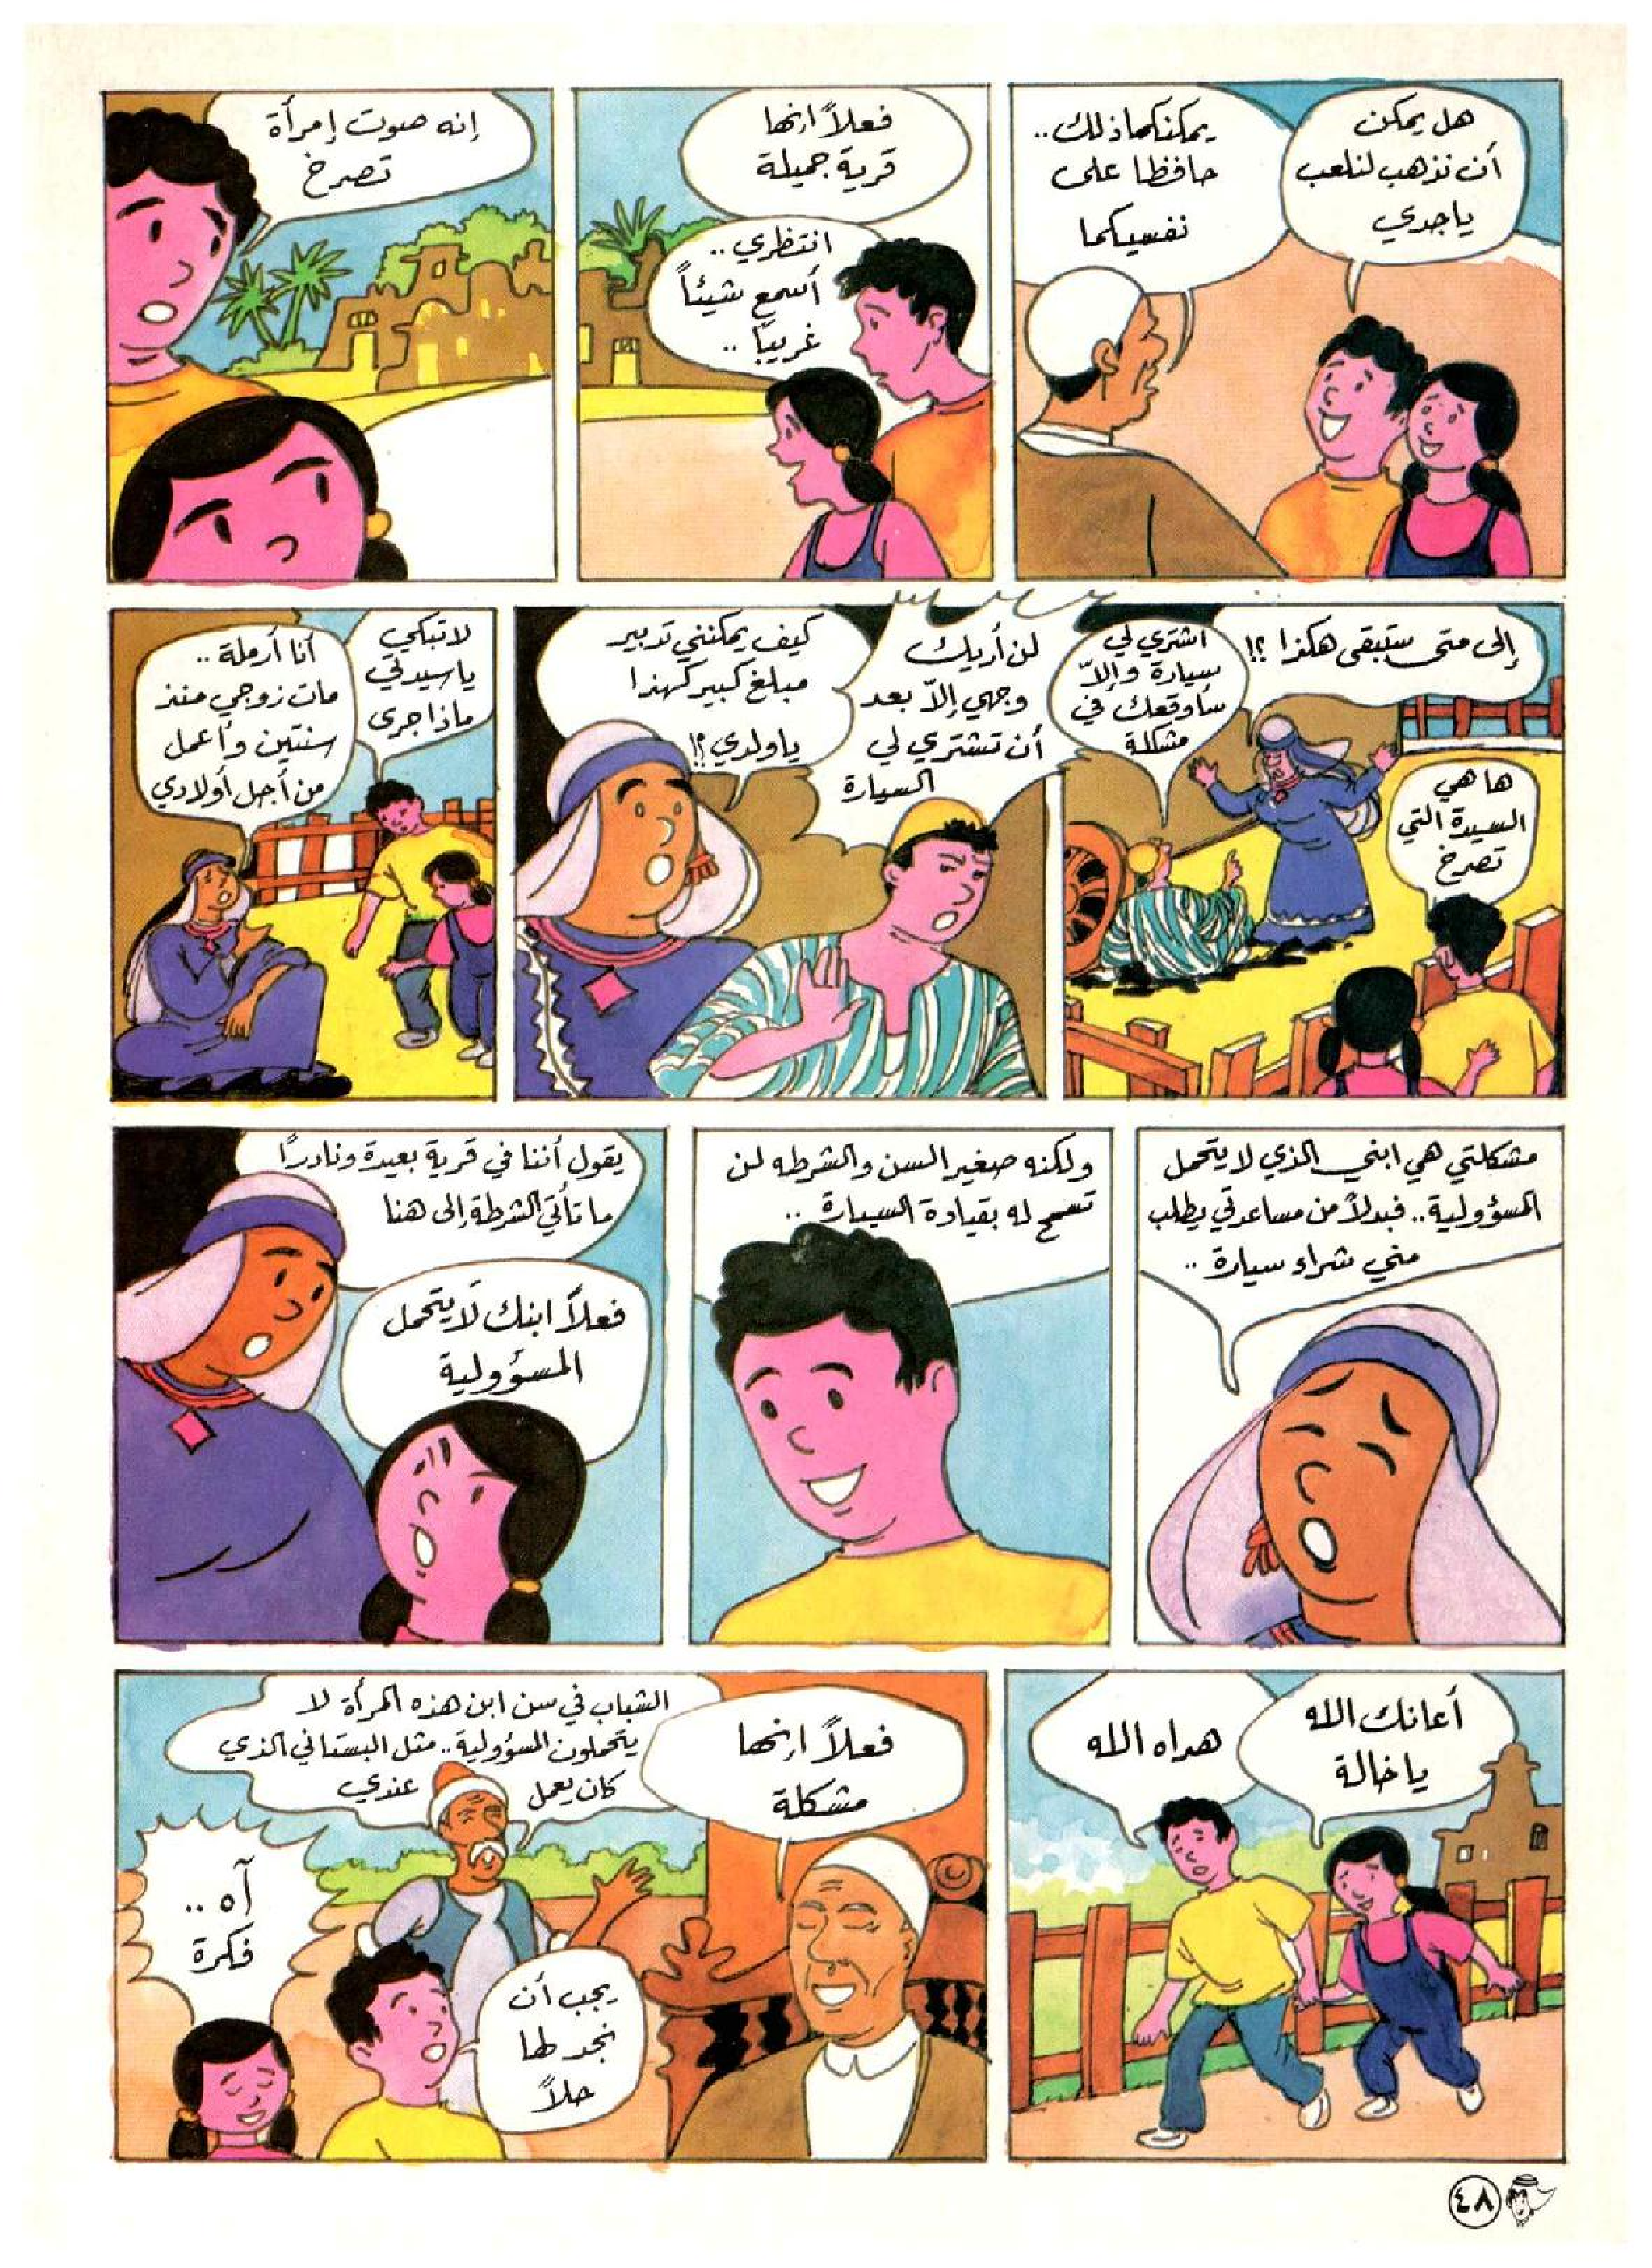 هل يمكن
أن نذهب لنلعب
ياجدي
يمكنكما ذلك..
حافظا على
نفسيكما
فعلاً انها
قرية جميلة
انتظري..
أسمع شيئاً
غريباً ..
إنه صوت إمرأة
تصرخ
إلى متى ستبقى هكذا ؟!
اشتري لي
سيارة وإلاّ
سأوقعك في
مشكلة
ها هي
السيدة التي
تصرخ
لن أريك
وجهي إلاّ بعد
أن تشتري لي
السيارة
كيف يمكنني تدبير
مبلغ كبير كهذا
ياولدي ؟!
لا تبكي
ياسيدتي
ماذا جرى
أنا أرملة ..
مات زوجي منذ
سنتين وأعمل
من أجل أولادي
مشكلتي هي ابني الذي لا يتحمل
المسؤولية.. فبدلاً من مساعدتي يطلب
مني شراء سيارة ..
ولكنه صغير السن والشرطه لن
تسمح له بقيادة السيارة ..
يقول أننا في قرية بعيدة ونادرًا
ما تأتي الشرطة إلى هنا
فعلاً ابنك لا يتحمل
المسؤولية
أعانك الله
ياخالة
هداه الله
فعلاً انها
مشكلة
الشباب في سن ابن هذه المرأة لا
يتحملون المسؤولية.. مثل البستاني الذي
كان يعمل عندي
يجب أن
نجد لها
حلاً
آه ..
فكرة
٤٨